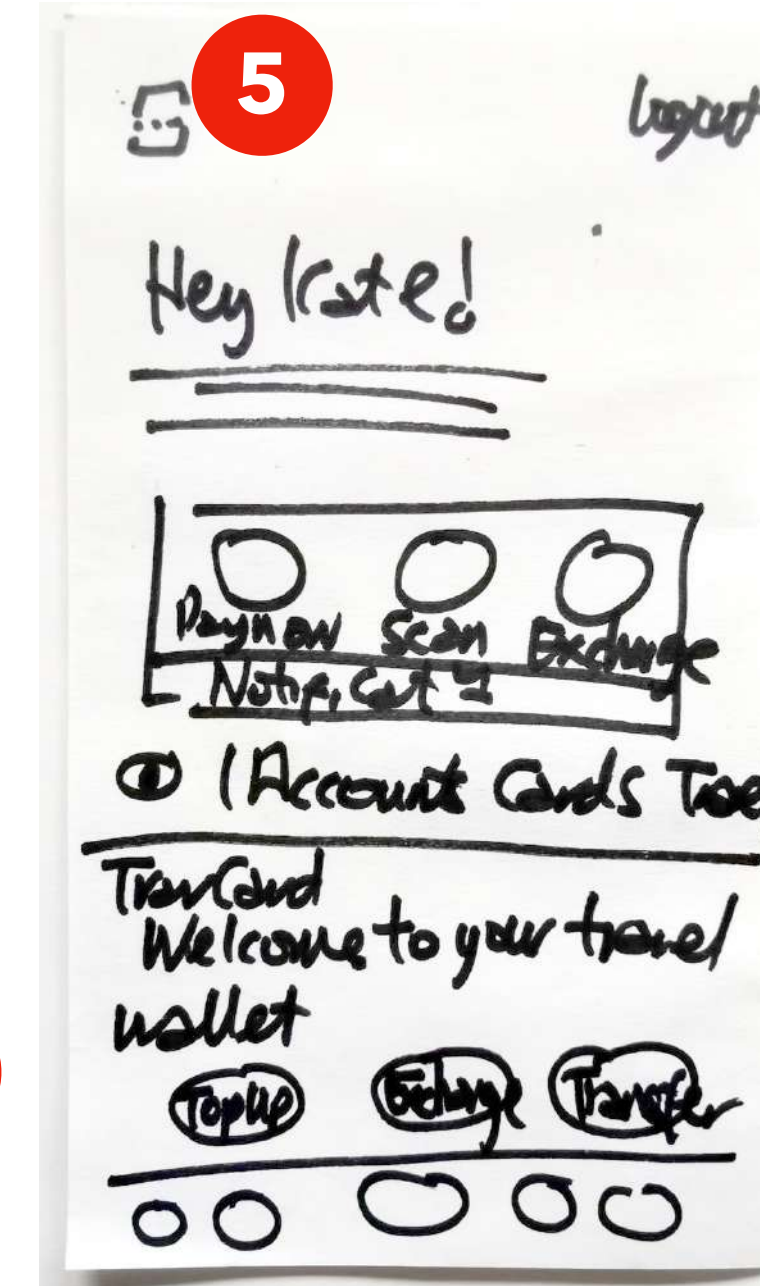 5
logout
Hey Kate!
Paynow Scan Exchange
Accounts Cards
TravCard
Welcome to your travel
wallet
TopUp Exchange Transfer